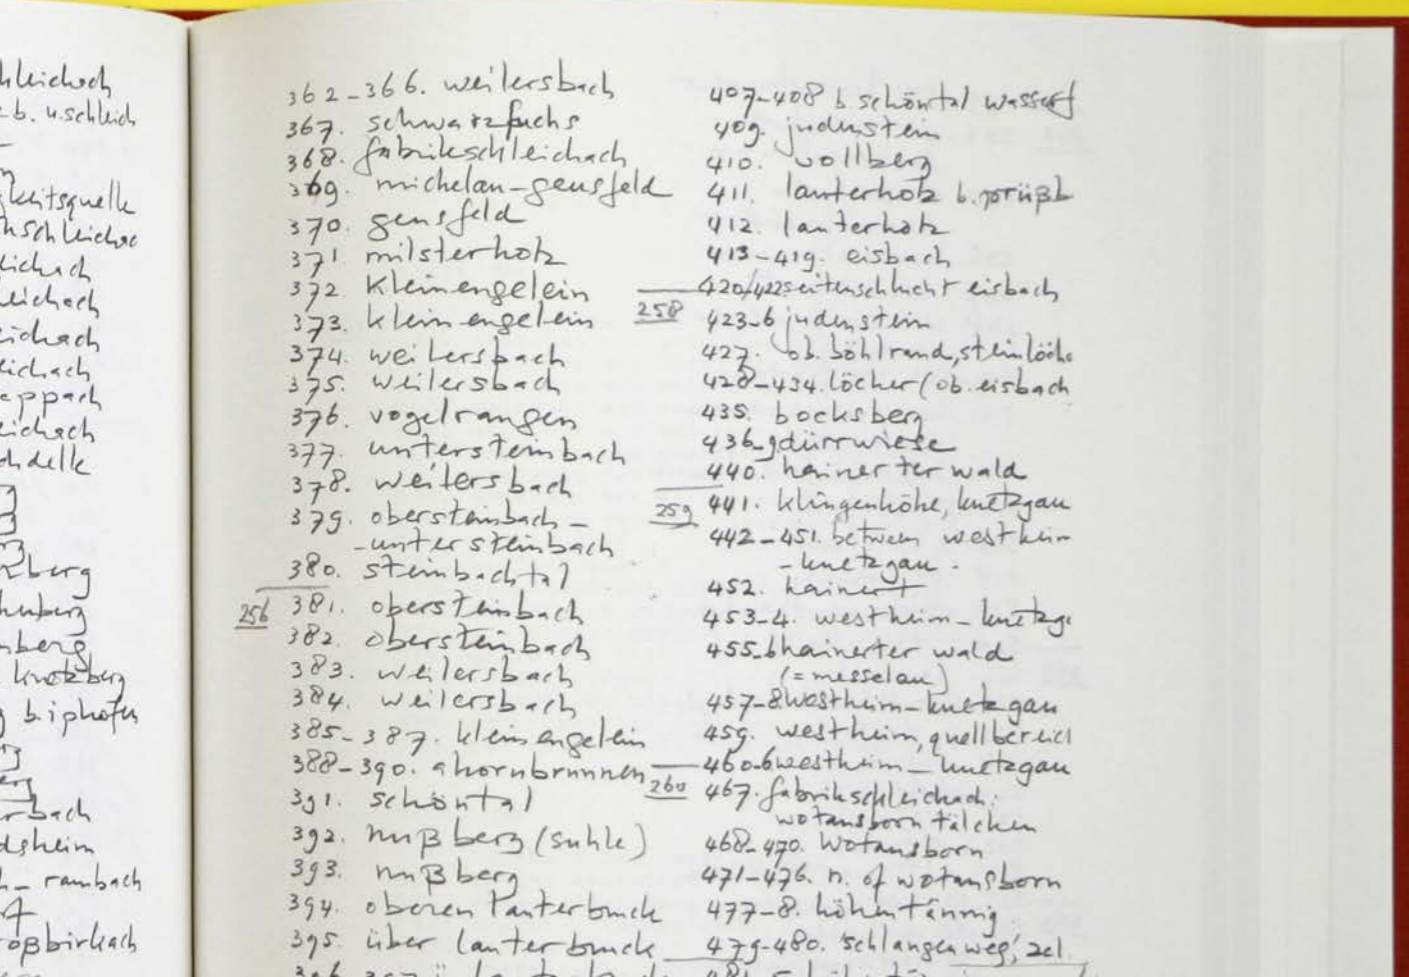 hleichach
b. u. schleich
keitsquelle
hschleichac
eichach
eichach
eichach
eichach
appach
eichach
delle
berg
berg
nberg
knetzberg
b. iphofen
rbach
dsheim
rambach
oßbirkach
362-366. weilersbach
367. schwarzfuchs
368. fabrikschleichach
369. michelau-geusfeld
370. geusfeld
371 milsterholz
372 kleinengelein
373. kleinengelein
374. weilersbach
375. weilersbach
376. vogelrangen
377. untersteinbach
378. weilersbach
379. obersteinbach-
-untersteinbach
380. steinbachtal
256 381. obersteinbach
382. obersteinbach
383. weilersbach
384. weilersbach
385-387. kleinengelein
388-390. ahornbrunnen
391. schöntal
392. nußberg (suhle)
393. nußberg
394. oberen lauterbruck
395. über lauterbruck
407-408 b schöntal wasserf
409. judenstein
410. vollberg
411. lauterholz b. prüßb
412. lauterholz
413-419. eisbach
420/422 seitenschlucht eisbach
258 423-6 judenstein
427. ob. böhlrand, steinlöche
428-434. löcher (ob. eisbach
435. bocksberg
436-9 dürrwiese
440. hainerter wald
259 441. klingenhöhe, knetzgau
442-451. between westheim
-knetzgau.
452. hainert
453-4. westheim-knetzga
455-6 hainerter wald
(=messelau)
457-8 westheim-knetzgau
459. westheim, quellbereich
460-6 westheim-knetzgau
260 467. fabrikschleichach:
wotansborn tälchen
468-470. wotansborn
471-476. n. of wotansborn
477-8. höhentännig
479-480. 'schlangenweg', zel